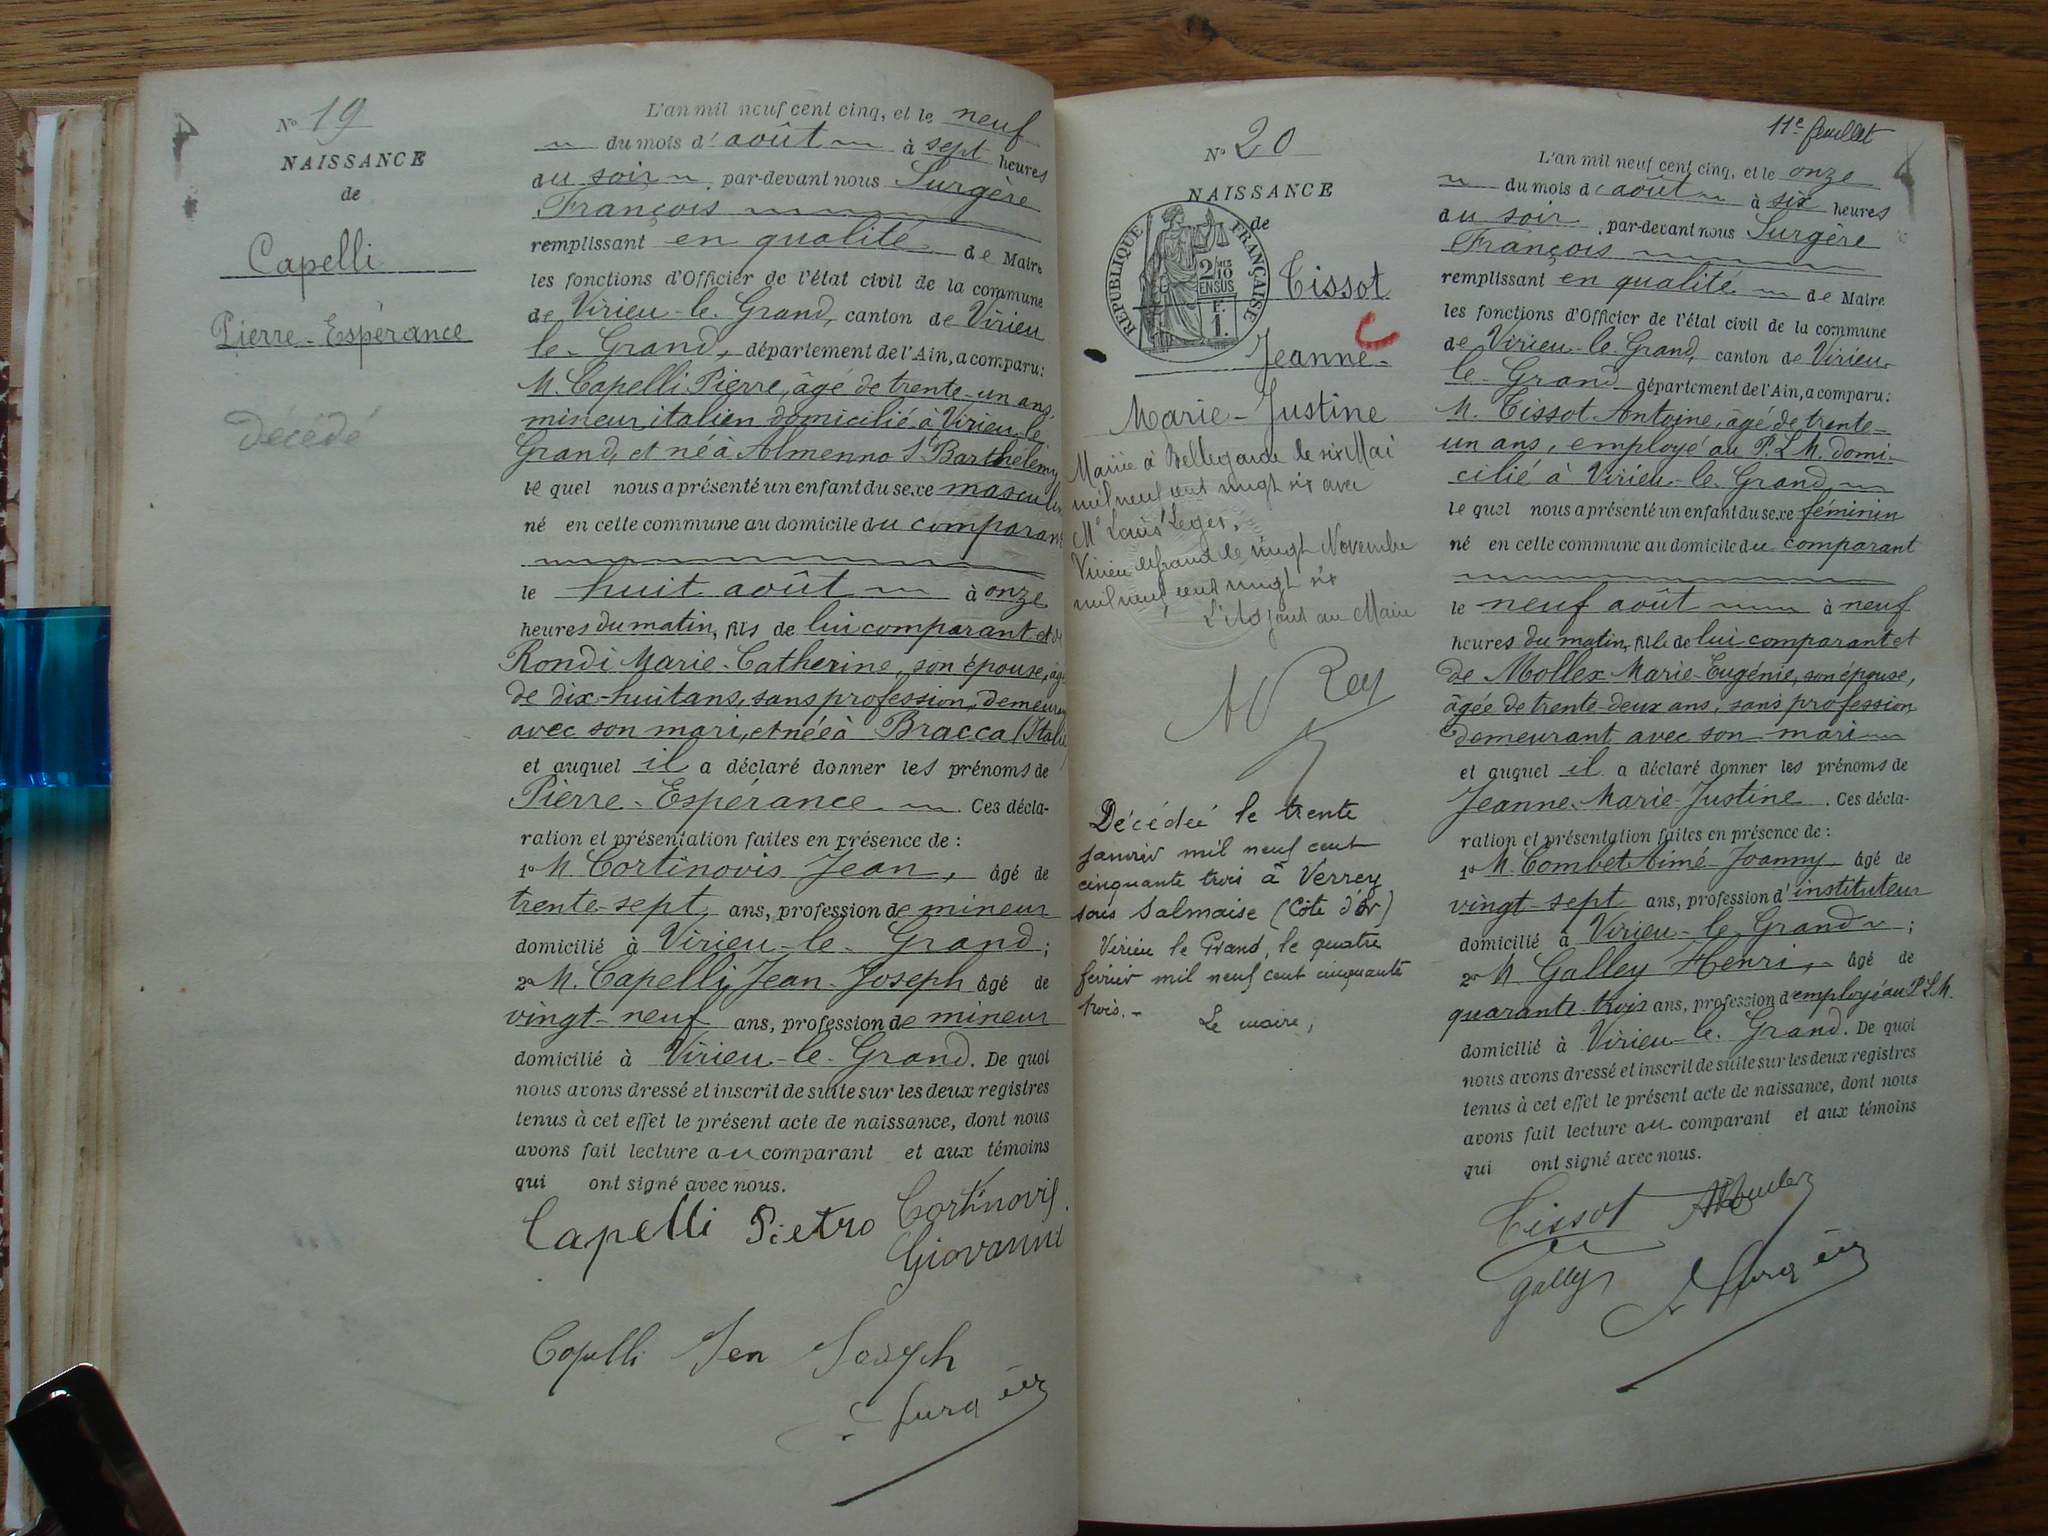 No 19
NAISSANCE
de
Capelli
Pierre-Espérance
décédé
L'an mil neuf cent cinq, et le neuf
du mois d'août à sept heures
du soir, par-devant nous Surgère
François
remplissant en qualité de Maire
les fonctions d'Officier de l'état civil de la commune
de Virieu-le-Grand, canton de Virieu
le-Grand, département de l'Ain, a comparu:
M. Capelli Pierre, âgé de trente-un ans,
mineur italien domicilié à Virieu-le
Grand, et né à Almenno St Barthélemy
le quel nous a présenté un enfant du sexe masculin
né en cette commune au domicile du comparant
le huit août à onze
heures du matin, fils de lui comparant et de
Rondi Marie-Catherine, son épouse, âgée
de dix-huit ans, sans profession, demeurant
avec son mari, et née à Bracca (Italie)
et auquel il a déclaré donner les prénoms de
Pierre-Espérance. Ces décla-
ration et présentation faites en présence de :
1º M. Cortinovis Jean, âgé de
trente-sept ans, profession de mineur
domicilié à Virieu-le-Grand;
2º M. Capelli Jean-Joseph âgé de
vingt-neuf ans, profession de mineur
domicilié à Virieu-le-Grand. De quoi
nous avons dressé et inscrit de suite sur les deux registres
tenus à cet effet le présent acte de naissance, dont nous
avons fait lecture au comparant et aux témoins
qui ont signé avec nous.
Capelli Pietro Cortinovis
Giovanni
Capelli Jen Joseph
Surgère
11e feuillet
No 20
NAISSANCE
de
RÉPUBLIQUE FRANÇAISE
2/10
EN SUS
F.
1.
Tissot
Jeanne-
Marie-Justine
Mariée à Bellegarde le six Mai
mil neuf cent vingt six avec
Mr Louis Leger.
Virieu le Grand le vingt Novembre
mil neuf cent vingt six
L'adjoint au Maire
Rey
Décédée le trente
janvier mil neuf cent
cinquante trois à Verrey
sous Salmaise (Côte d'Or)
Virieu le Grand, le quatre
février mil neuf cent cinquante
trois.-
Le maire,
L'an mil neuf cent cinq, et le onze
du mois d'août à six heures
du soir, par-devant nous Surgère
François
remplissant en qualité de Maire
les fonctions d'Officier de l'état civil de la commune
de Virieu-le-Grand, canton de Virieu-
le-Grand département de l'Ain, a comparu:
M. Tissot Antoine, âgé de trente-
un ans, employé au P.L.M. domi-
cilié à Virieu-le-Grand
le quel nous a présenté un enfant du sexe féminin
né en cette commune au domicile du comparant
le neuf août à neuf
heures du matin, fille de lui comparant et
de Mollex Marie-Eugénie, son épouse,
âgée de trente-deux ans, sans profession
demeurant avec son mari
et auquel il a déclaré donner les prénoms de
Jeanne-Marie-Justine. Ces décla-
ration et présentation faites en présence de :
1º M. Combet Aimé-Joanny âgé de
vingt-sept ans, profession d'instituteur
domicilié à Virieu-le-Grand;
2º M Galley Henri, âgé de
quarante-trois ans, profession d'employé au P.L.M.
domicilié à Virieu-le-Grand. De quoi
nous avons dressé et inscrit de suite sur les deux registres
tenus à cet effet le présent acte de naissance, dont nous
avons fait lecture au comparant et aux témoins
qui ont signé avec nous.
Tissot
Galley Surgère